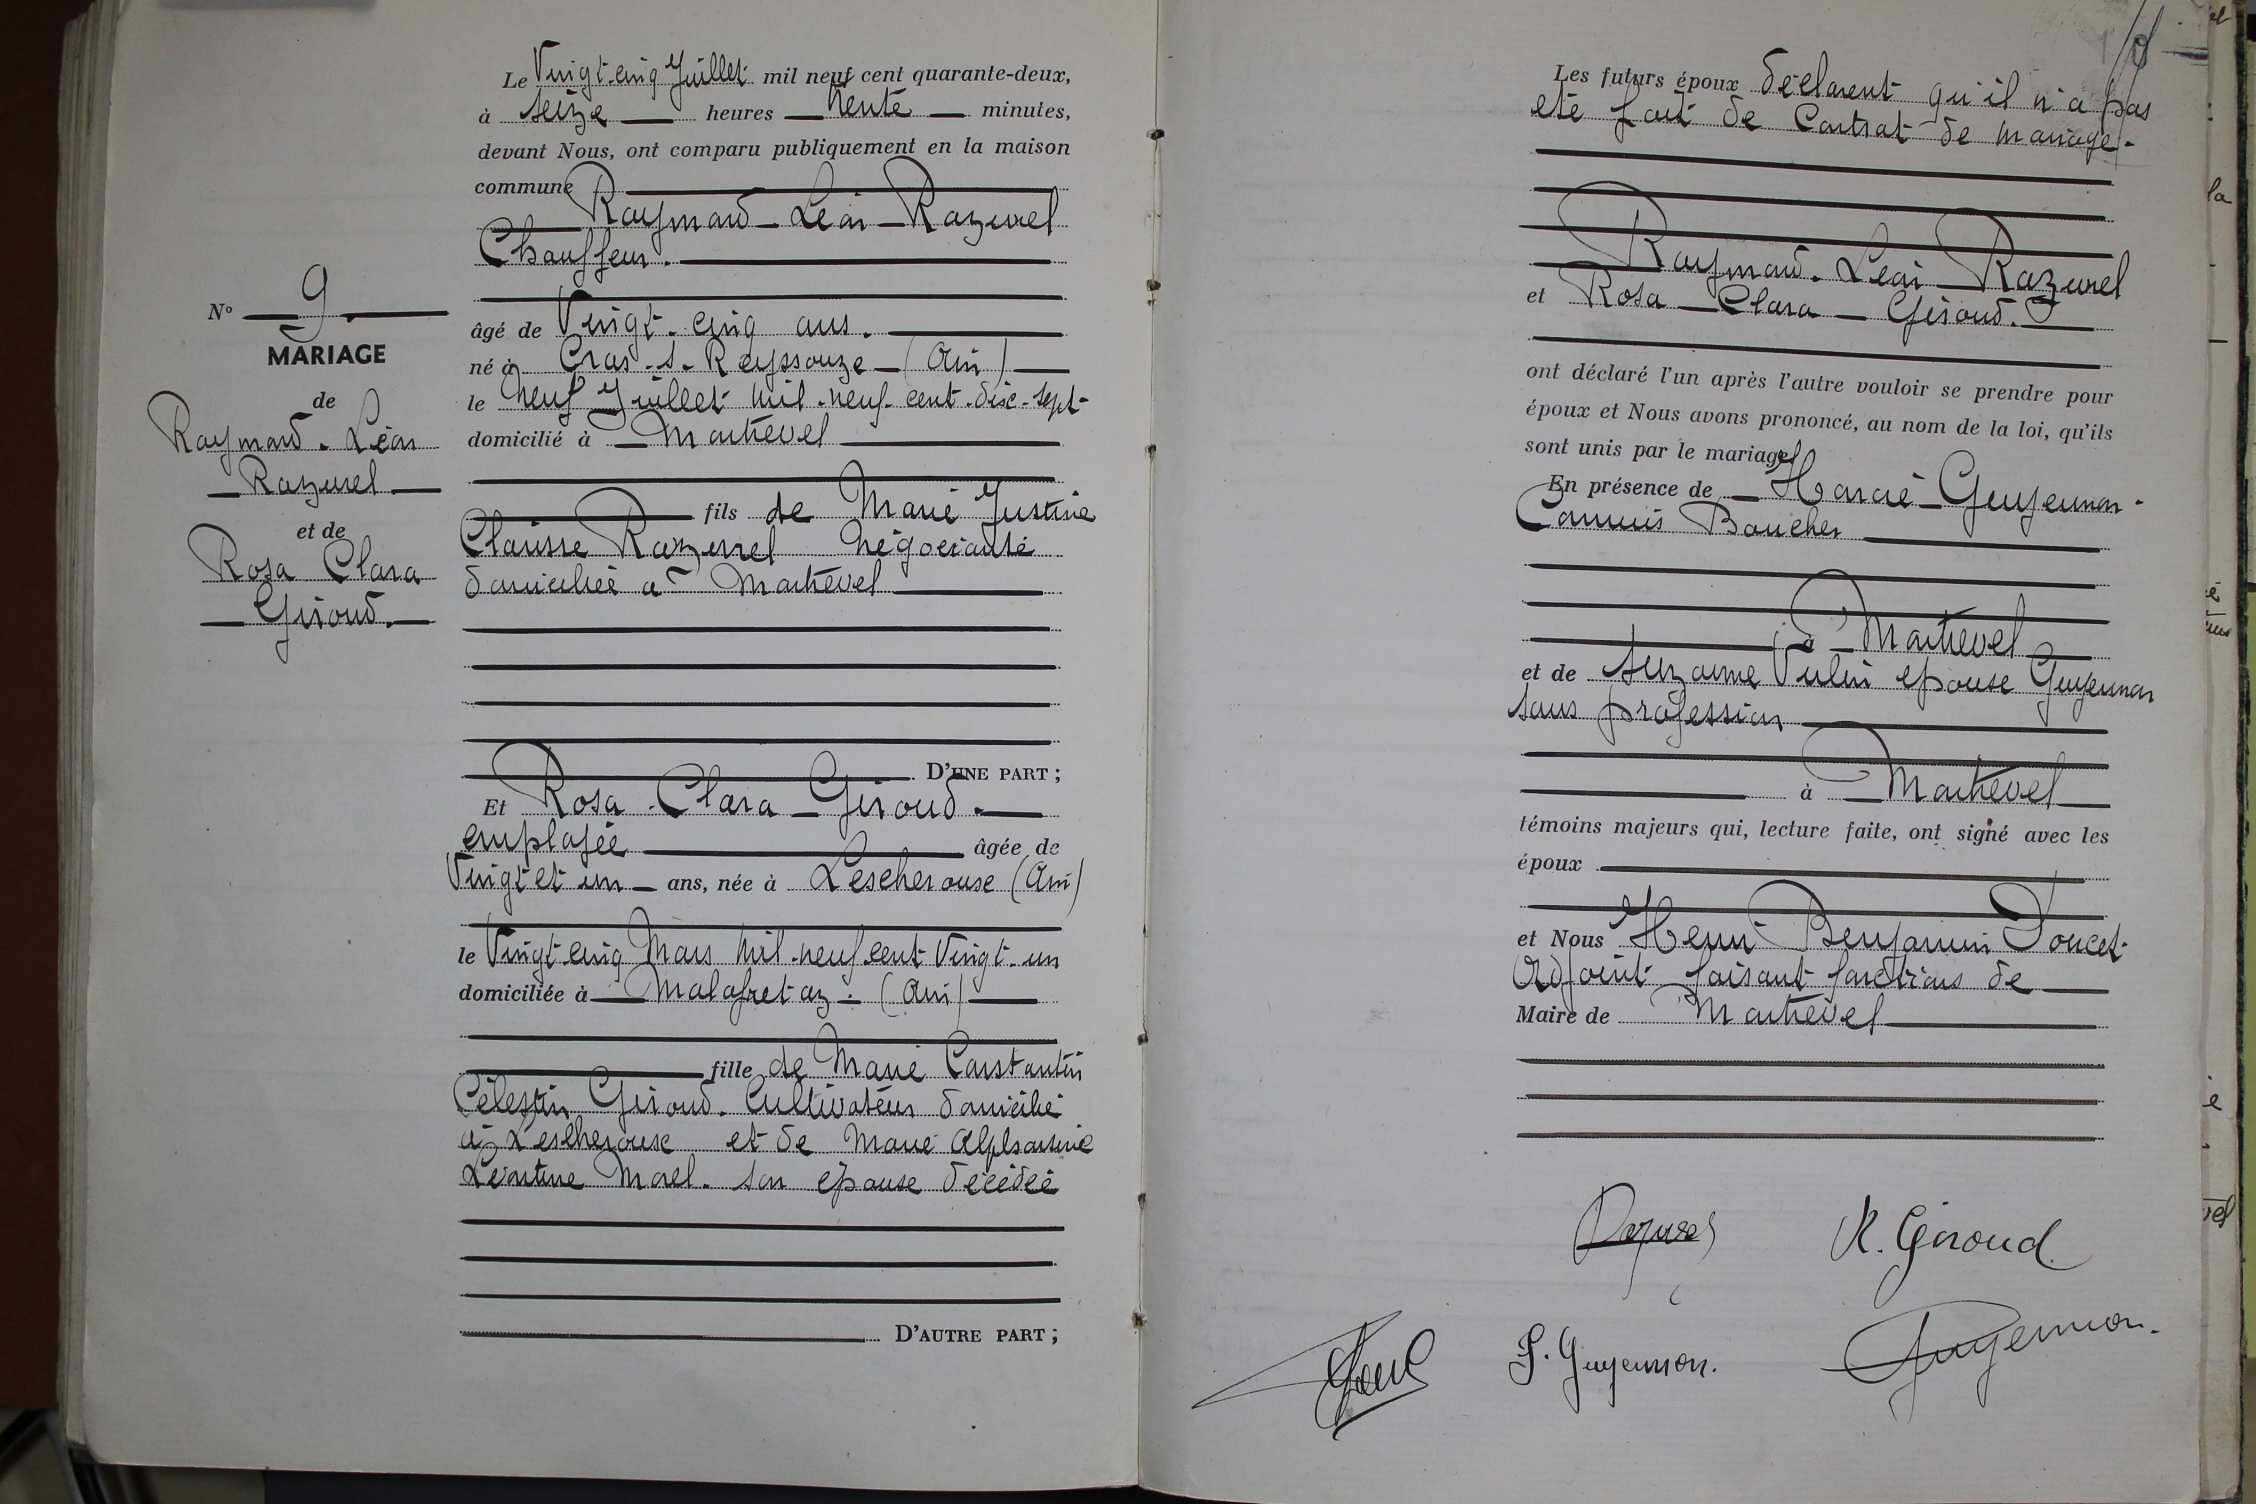 N° 9
MARIAGE
de
Raymond-Léon
Razurel
et de
Rosa Clara
Giroud.
Le Vingt-cinq Juillet mil neuf cent quarante-deux,
à seize heures trente minutes,
devant Nous, ont comparu publiquement en la maison
commune
Raymond-Léon-Razurel
Chauffeur.
âgé de Vingt-cinq ans.
né à Cras-s-Reyssouze-(Ain)
le neuf Juillet mil-neuf-cent-dix-sept-
domicilié à Montrevel
fils de Marie Justine
Clarisse Razurel négociante
domiciliée à Montrevel
D'UNE PART ;
Et Rosa-Clara-Giroud.
employée âgée de
Vingt et un ans, née à Lescheroux (Ain)
le Vingt cinq Mars mil-neuf-cent Vingt-un
domiciliée à Malafretaz.(Ain)
fille de Marie Constantin
Célestin Giroud. Cultivateur domicilié
à Lescheroux et de Marie Alphonsine
Léontine Morel. son épouse décédée
D'AUTRE PART ;
Les futurs époux déclarent qu'il n'a pas
été fait de Contrat de mariage.
Raymond-Léon-Razurel
et Rosa-Clara-Giroud.
ont déclaré l'un après l'autre vouloir se prendre pour
époux et Nous avons prononcé, au nom de la loi, qu'ils
sont unis par le mariage
En présence de Horace-Guyennon-
Commis Boucher
à Montrevel
et de Suzanne Vulin épouse Guyennon
sans profession
à Montrevel
témoins majeurs qui, lecture faite, ont signé avec les
époux
et Nous Henri Benjamin Doucet
Adjoint faisant fonctions de
Maire de Montrevel
Razurel R. Giroud
S. Guyennon. Guyennon.